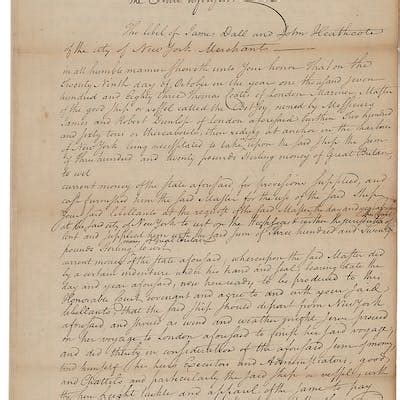 The libel of James Dall and John Heathcote
of the city of New York Merchants
in all humble manner Sheweth unto your honor That on the
Twenty Ninth day of October in the year one thousand seven
hundred and eighty three Thomas Coates of London Mariner Master
of the good ship or vessel called the owned by Messieurs
James and Robert Dunlop of London aforesaid burthen Two hundred
and sixty tons or thereabouts then riding at anchor in the harbor
of New York being necessitated to take upon the said ship the sum
of three hundred and twenty pounds Sterling money of Great Britain
to wit
current money of the state aforesaid for provisions supplied, and
cash furnished him the said Master for the use of the said Ship
your said libellants at the request of the said Master the day and year
at the said city of New York to wit on the
lent and supplied him with the said sum of three hundred and Twenty
pounds Sterling money of Great Britain to wit
current money of the state aforesaid, whereupon the said Master did
by a certain indenture under his hand and seal, bearing date the
day and year aforesaid, now here ready to be produced to this
Honorable Court, covenant and agree to and with your said
libellants that the said ship should depart from New York
aforesaid and proceed as wind and weather might serve proceed
on her voyage to London aforesaid to finish her said voyage
and did thereby in consideration of the aforesaid sum of money
bind himself his heirs Executors and Administrators, goods
and Chattels and particularly the said ship or vessel, with
the freight tackle and apparel of the same to pay